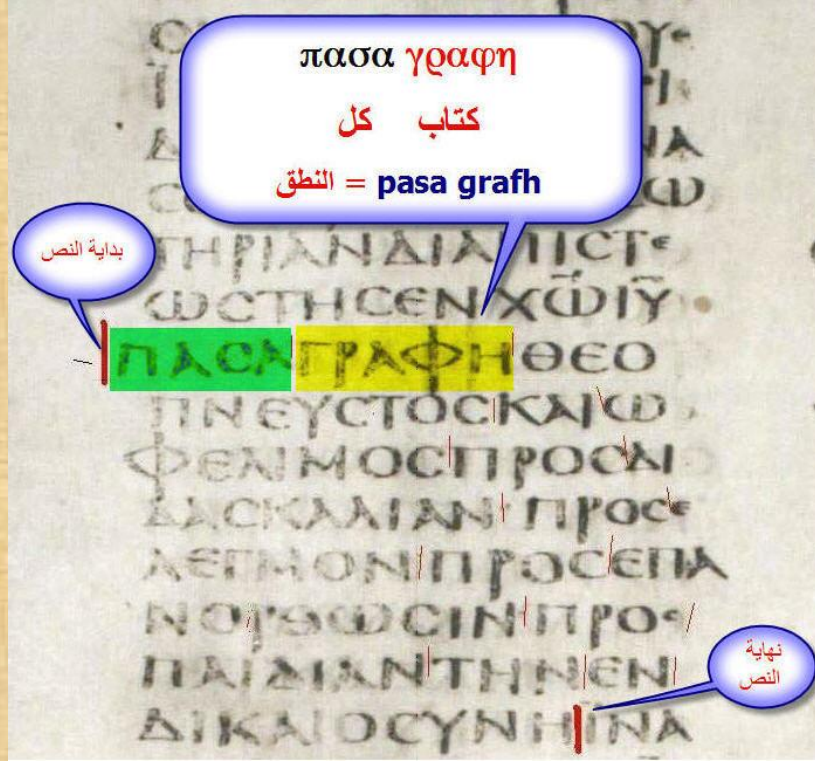 πασα γραφη
كل كتاب
pasa grafh = النطق
بداية النص
ΤΗΡΙΑΝΔΙΑΠΙϹΤΕ
ΩϹΤΗϹΕΝΧΩ̅ΙΥ̅
ΠΑϹΑΓΡΑΦΗΘΕΟ
ΠΝΕΥϹΤΟϹΚΑΙΩ
ΦΕΛΙΜΟϹΠΡΟϹΔΙ
ΔΑϹΚΑΛΙΑΝΠΡΟϹΕ
ΛΕΓΜΟΝΠΡΟϹΕΠΑ
ΝΟΡΘΩϹΙΝΠΡΟϹ
ΠΑΙΔΙΑΝΤΗΝΕΝ
ΔΙΚΑΙΟϹΥΝΗΪΝΑ
نهاية النص